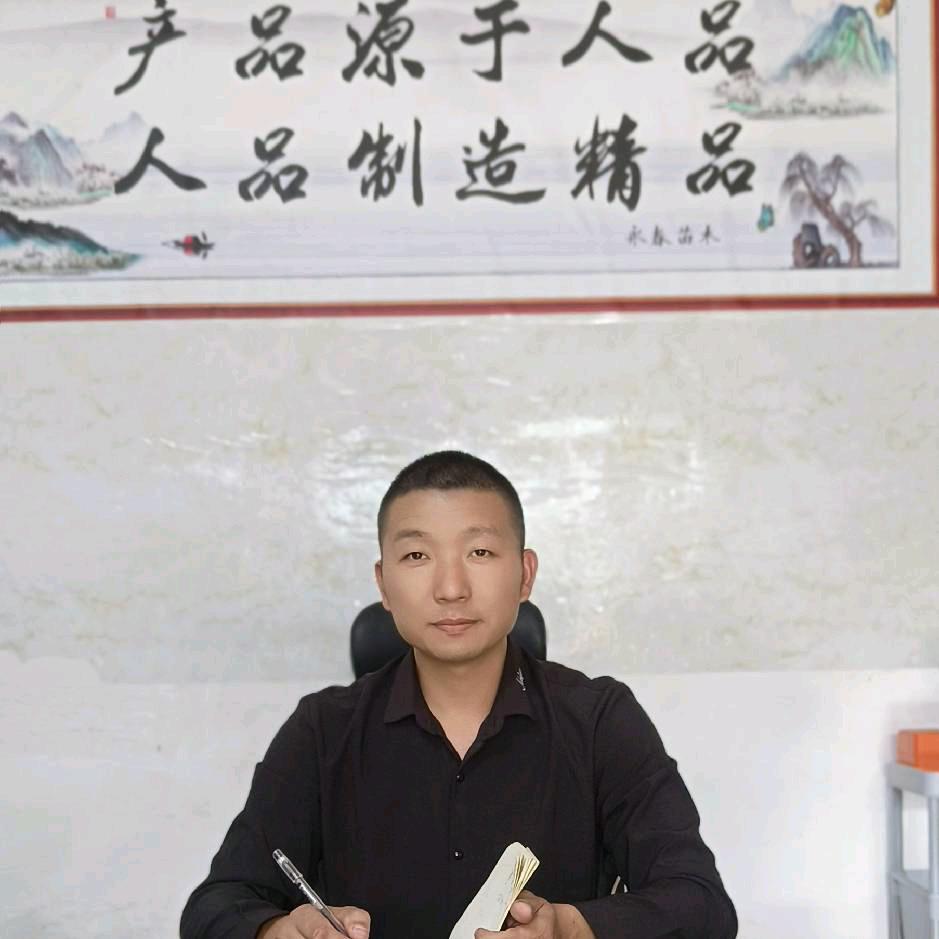 产品源于人品
人品制造精品
永春苗木